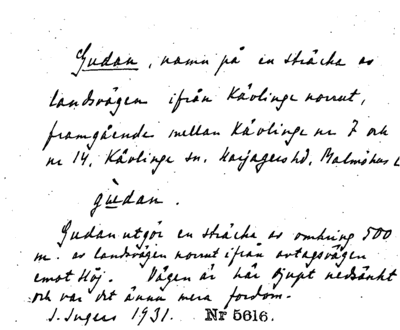 Gudan, namn på en sträcka av
landsvägen ifrån Kävlinge norrut,
framgående mellan Kävlinge nr 7 och
nr 14. Kävlinge sn. Harjagers hd, Malmöhus L
gudan.
Gudan utgör en sträcka av omkring 500
m. av landsvägen norrut ifrån avtagsvägen
emot Höj. Vägen är här djupt nedsänkt
och var det ännu mera fordom.
I. Ingers 1931. Nr 5616.